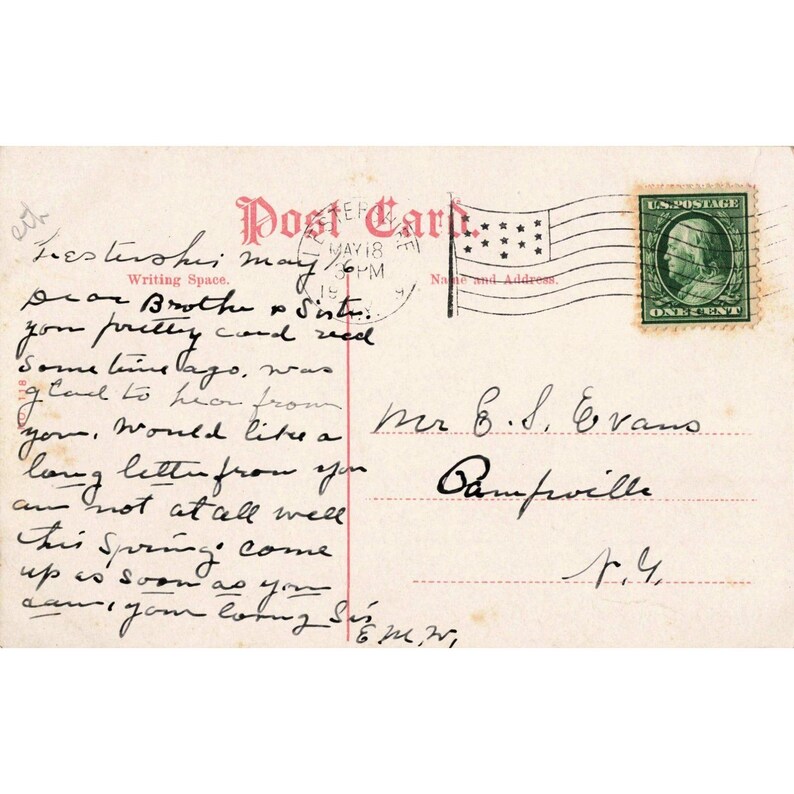 Post Card.
Writing Space.
Name and Address.
U.S. POSTAGE
ONE CENT
LESTERSHIRE
MAY 18
3 PM
19 9
N.Y.
Lestershire May 16
Dear Brothe & Sister.
you pretty card recd
some time ago. was
glad to hear from
you. Would like a
long letter from you
am not at all well
this Spring. come
up as soon as you
can. your loving Sis
E. M. W.
Mr E. S. Evans
Campville
N. Y.
NO. 118